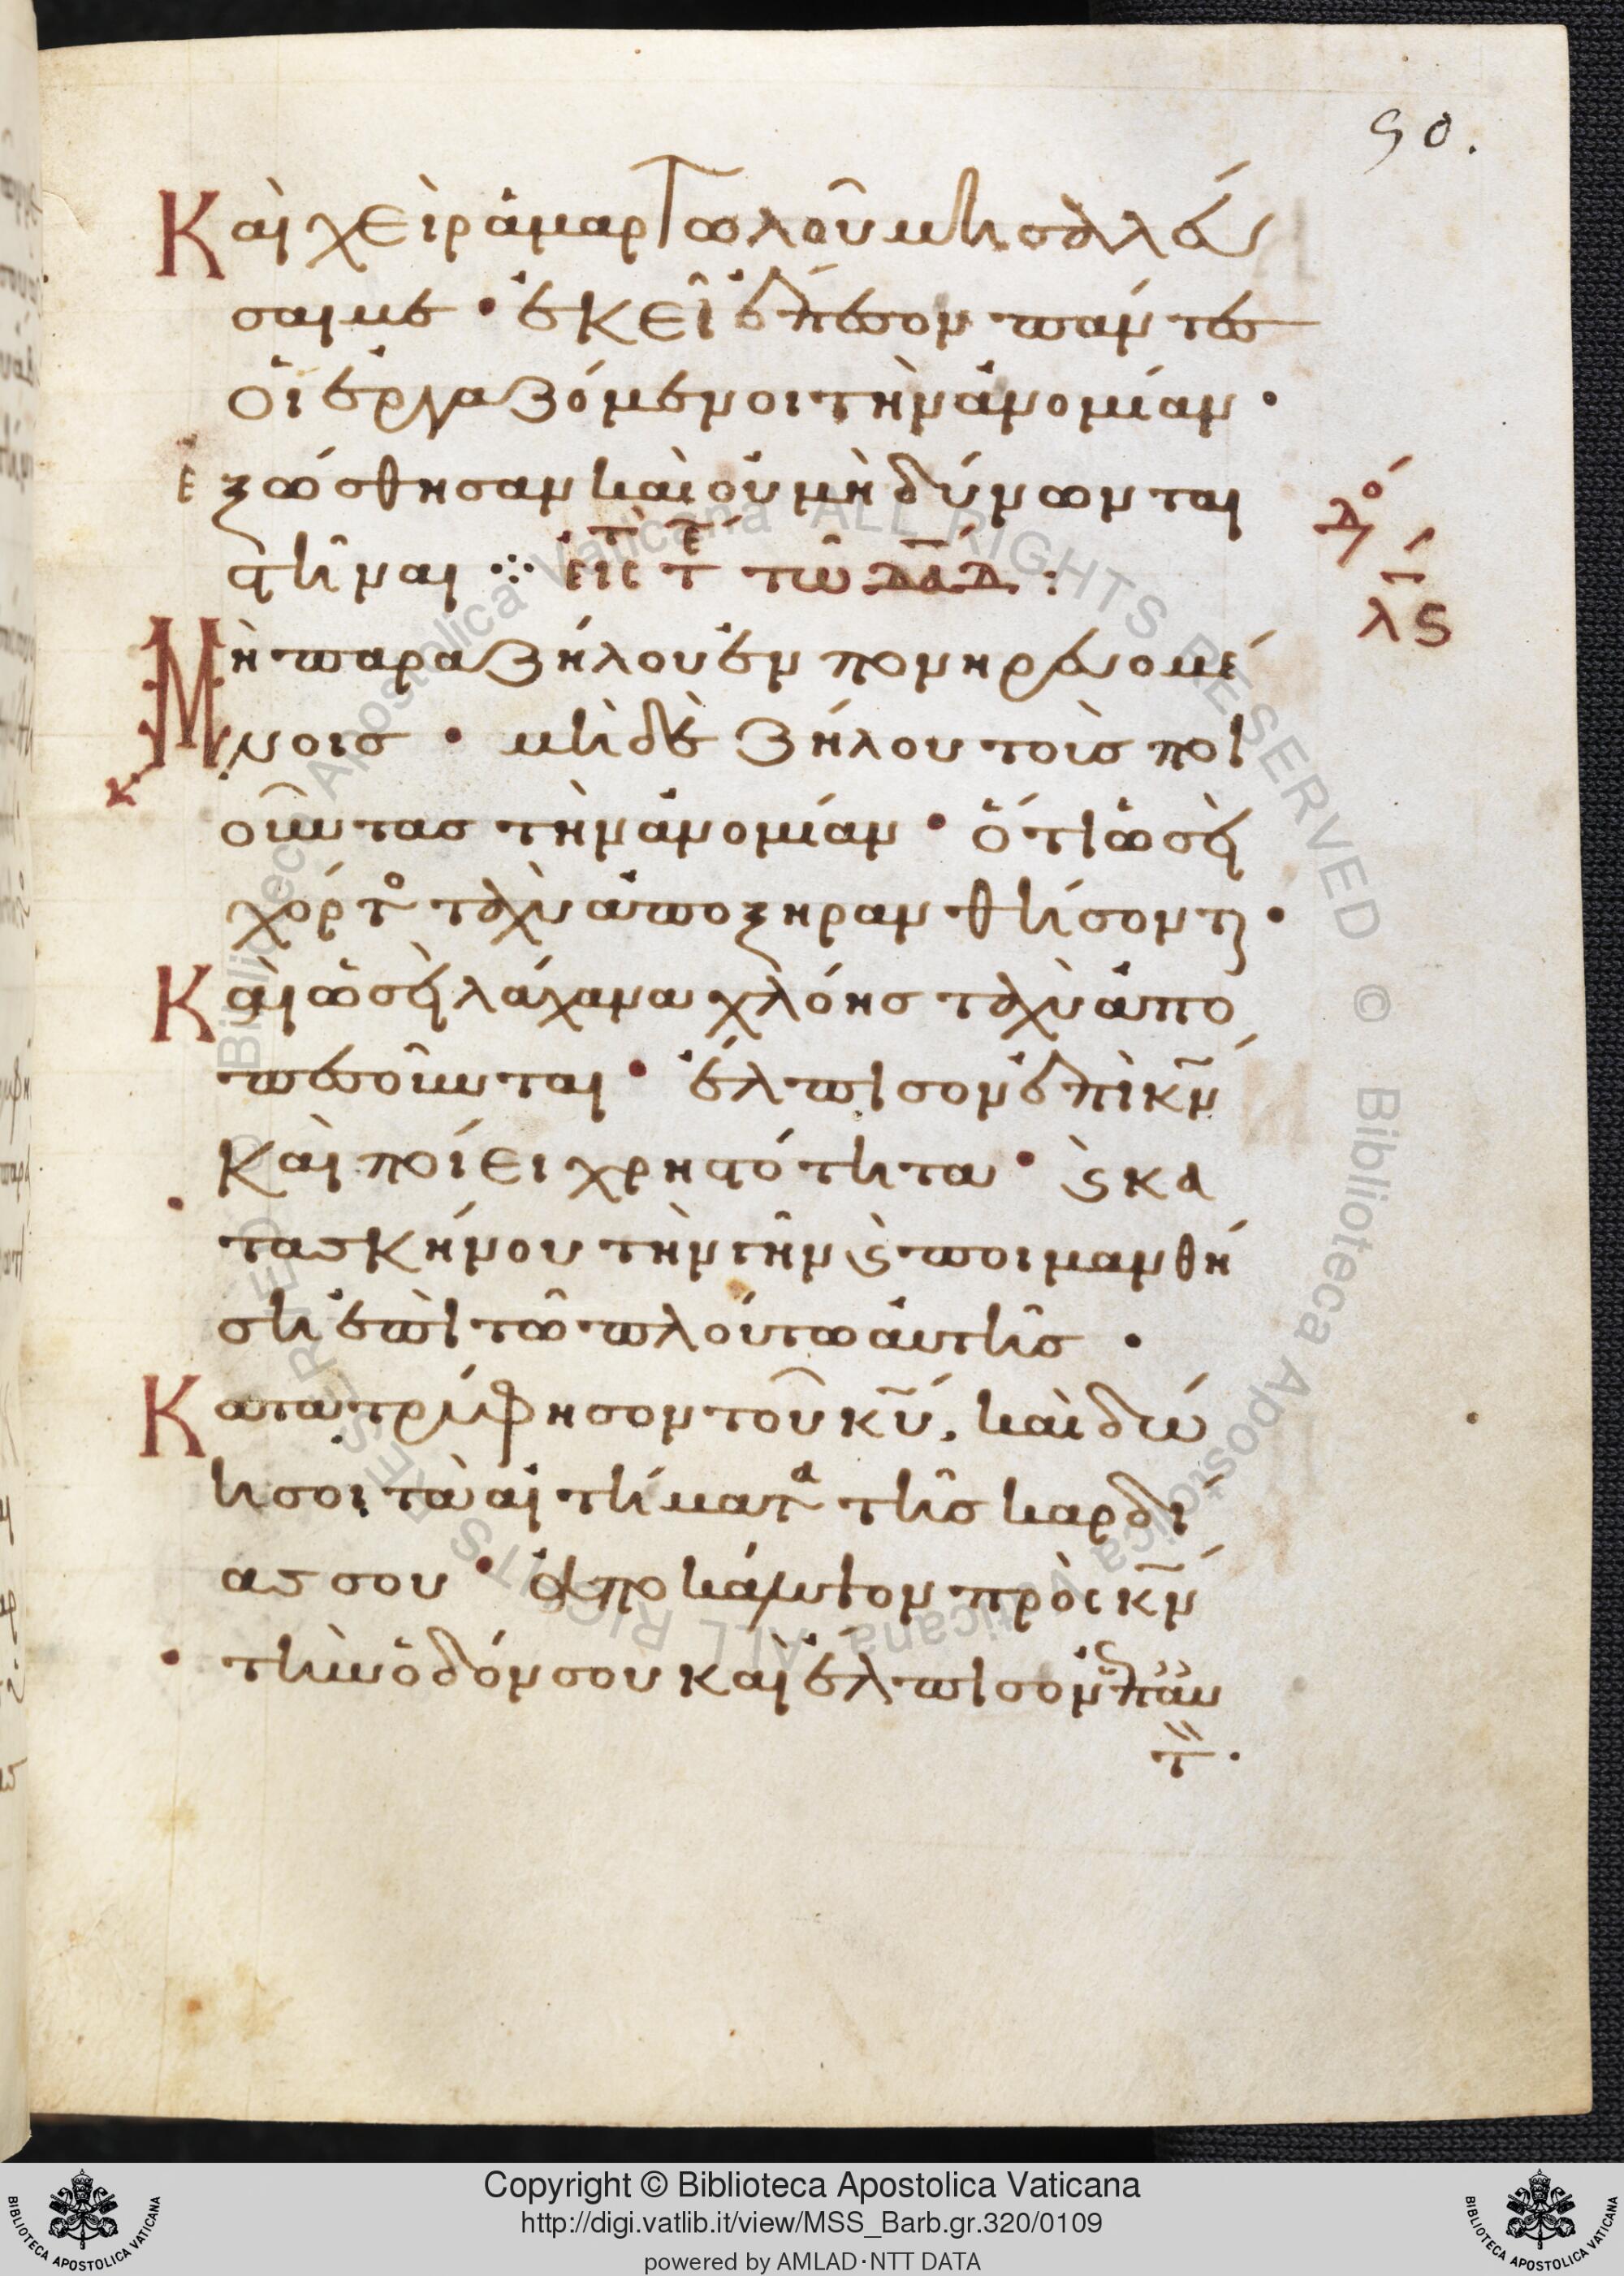 90.
Καὶ χεὶρ ἁμαρτωλοῦ μὴ σαλεύ
σαι με · ἐκεῖ ἔπεσον πάντες
οἱ ἐργαζόμενοι τὴν ἀνομίαν ·
ἐξώσθησαν καὶ οὐ μὴ δύνωνται
στῆναι ⁘ εἰς τ τε τῶ δαδ :
δ
λς
Μὴ παραζήλου ἐν πονηρευομέ
νοις · μὴ δὲ ζήλου τοὺς ποι
οῦντας τὴν ἀνομίαν · ὅτι ὡσεὶ
χόρτος ταχὺ ἀποξηρανθήσονται ·
Καὶ ὡσεὶ λάχανα χλόης ταχὺ ἀπο
πεσοῦνται · ἔλπισον ἐπὶ κν
Καὶ ποίει χρηστότητα · ϛ κα
τασκήνου τὴν γῆν ϛ ποιμανθή
ση ἐπὶ τῶ πλούτω αὐτῆς ·
Κατατρύφησον τοῦ κυ . καὶ δώ
η σοι τὰ αἰτήματα τῆς καρδί
ας σου · ἀποκάλυψον πρὸς κν
τὴν ὁδόν σου καὶ ἔλπισον ἐπ αυ
τ ·
Copyright © Biblioteca Apostolica Vaticana
http://digi.vatlib.it/view/MSS_Barb.gr.320/0109
powered by AMLAD·NTT DATA
BIBLIOTECA APOSTOLICA VATICANA
BIBLIOTECA APOSTOLICA VATICANA
Biblioteca Apostolica Vaticana ALL RIGHTS RESERVED ©